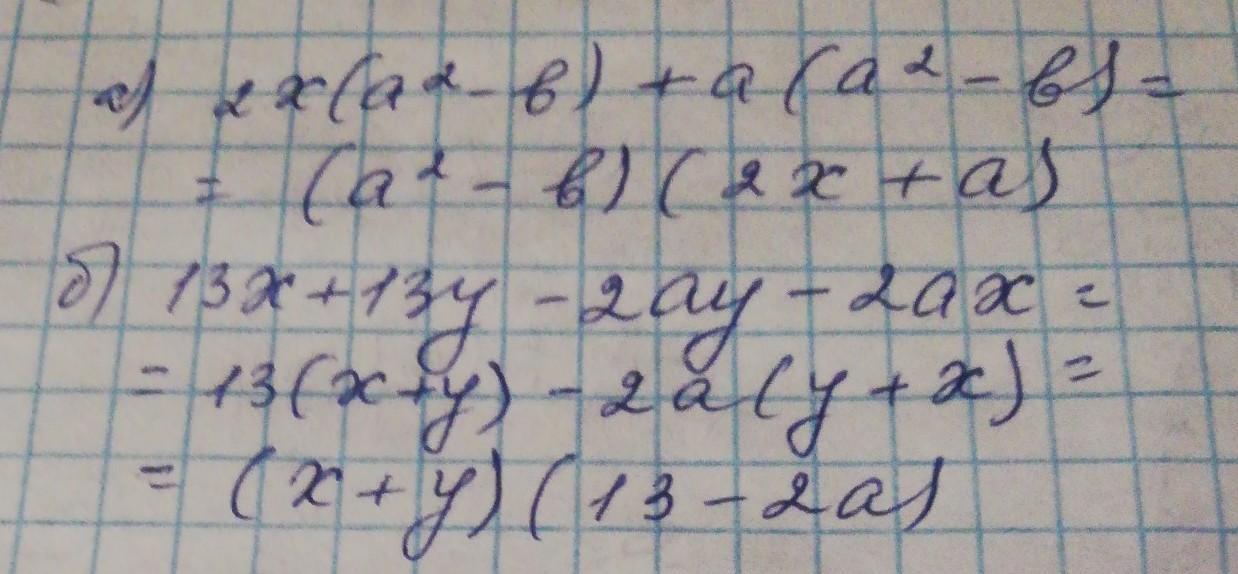 а) 2x(a² - в) + a(a² - в) =
= (a² - в)(2x + a)
б) 13x + 13y - 2ay - 2ax =
= 13(x + y) - 2a(y + x) =
= (x + y)(13 - 2a)